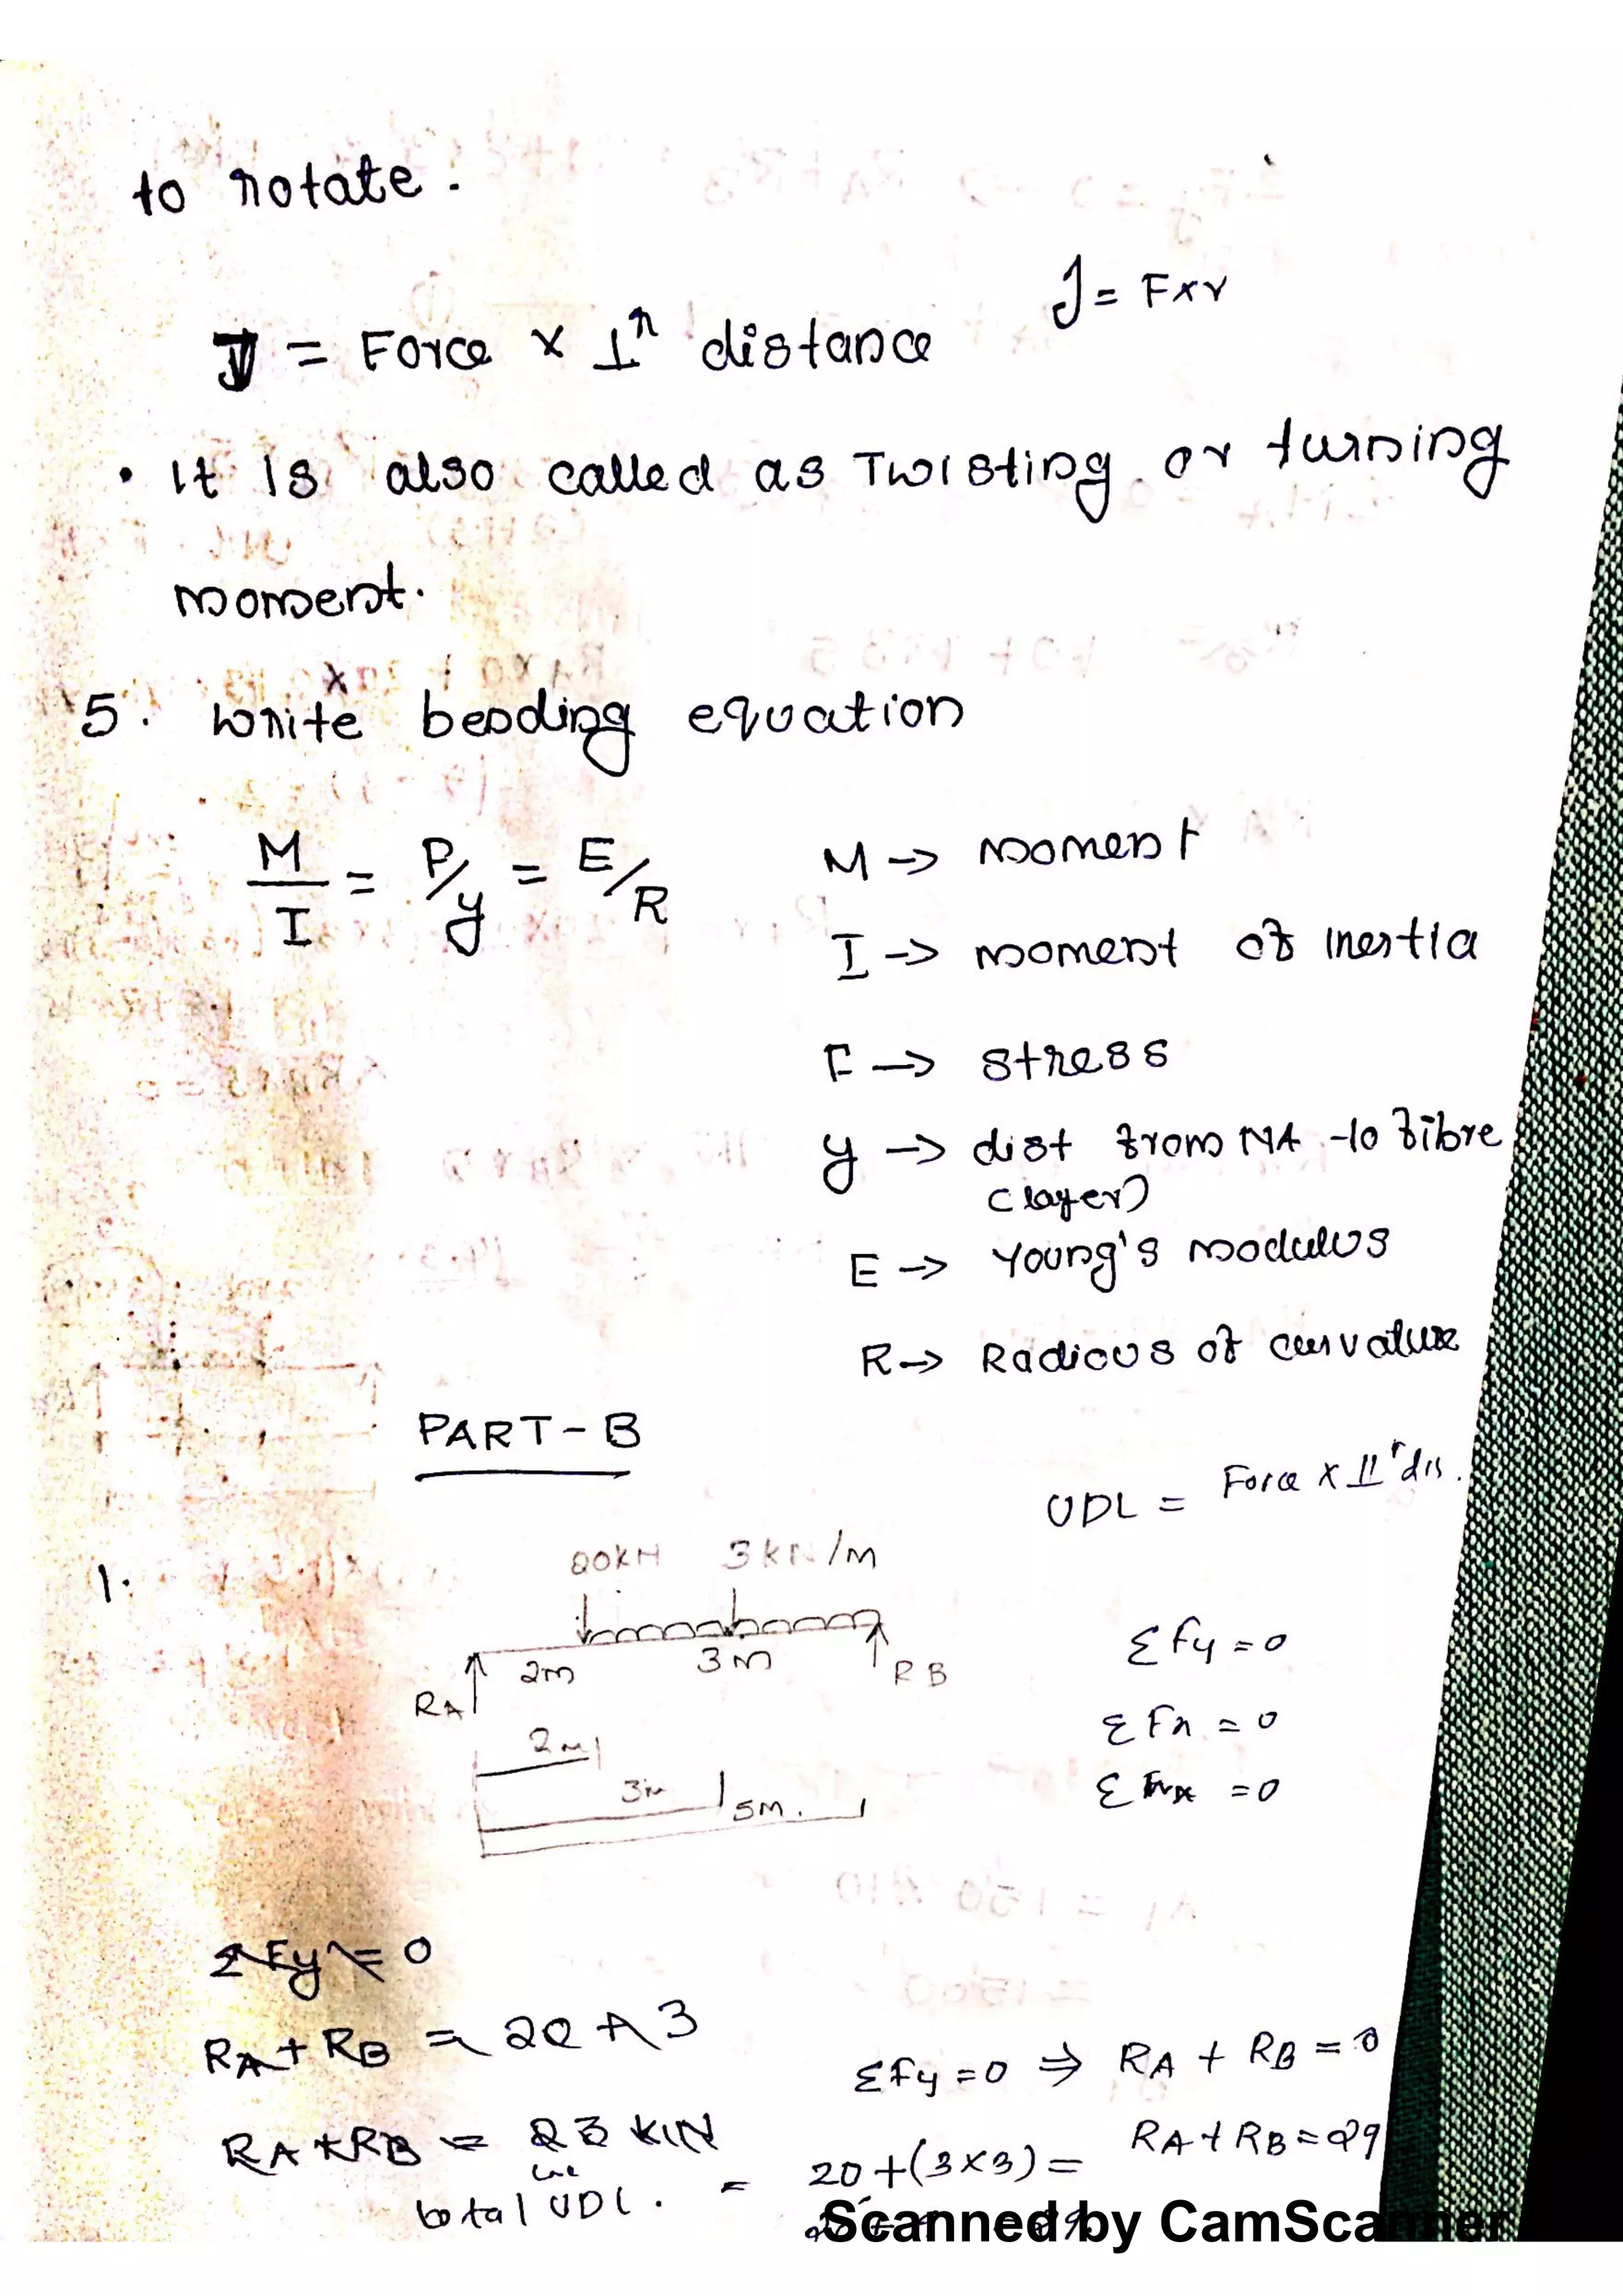 to rotate.
J = Force x ⊥r distance
J = F x r
• It is also called as Twisting or turning
moment.
5. Write bending equation
M/I = P/y = E/R
M -> moment
I -> moment of inertia
F -> stress
y -> dist from NA to fibre
(layer)
E -> Young's modulus
R -> Radious of curvature
PART-B
UDL = Force x ⊥r dis.
1.
20kN 3kN/m
2m 3m
RA RB
2m
3m 5m.
ΣFy = 0
ΣFx = 0
Σ = 0
ΣFy = 0
RA + RB = 20 + 3
RA + RB = 23 KN
total UDL. = 20 + (3x3) =
ΣFy = 0 ⇒ RA + RB = 0
RA + RB = 29
Scanned by CamScanner